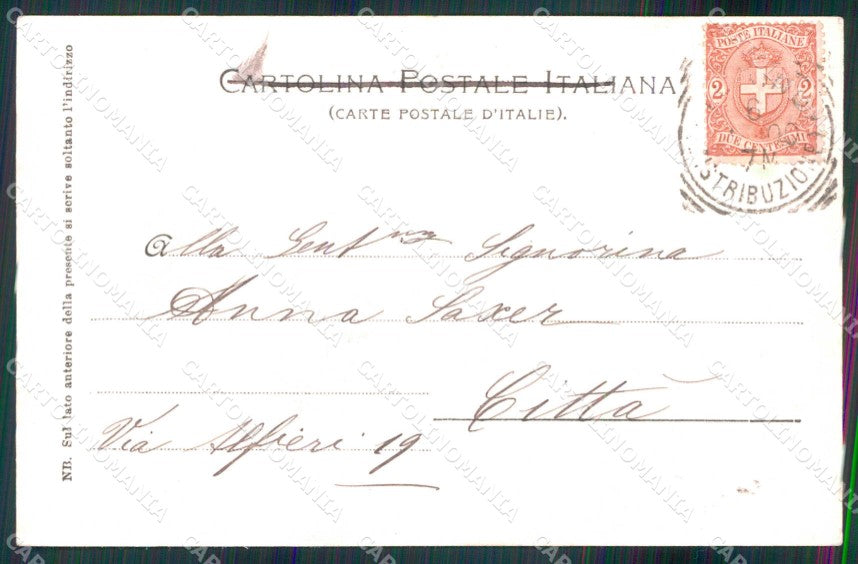 CARTOLINA POSTALE ITALIANA
(CARTE POSTALE D'ITALIE).
POSTE ITALIANE
2 2
DUE CENTESIMI
DISTRIBUZIONE
NB. Sul lato anteriore della presente si scrive soltanto l'indirizzo
Alla Gent.ma Signorina
Anna Saxer
Città
Via Alfieri 19
CARTOLINOMANIA